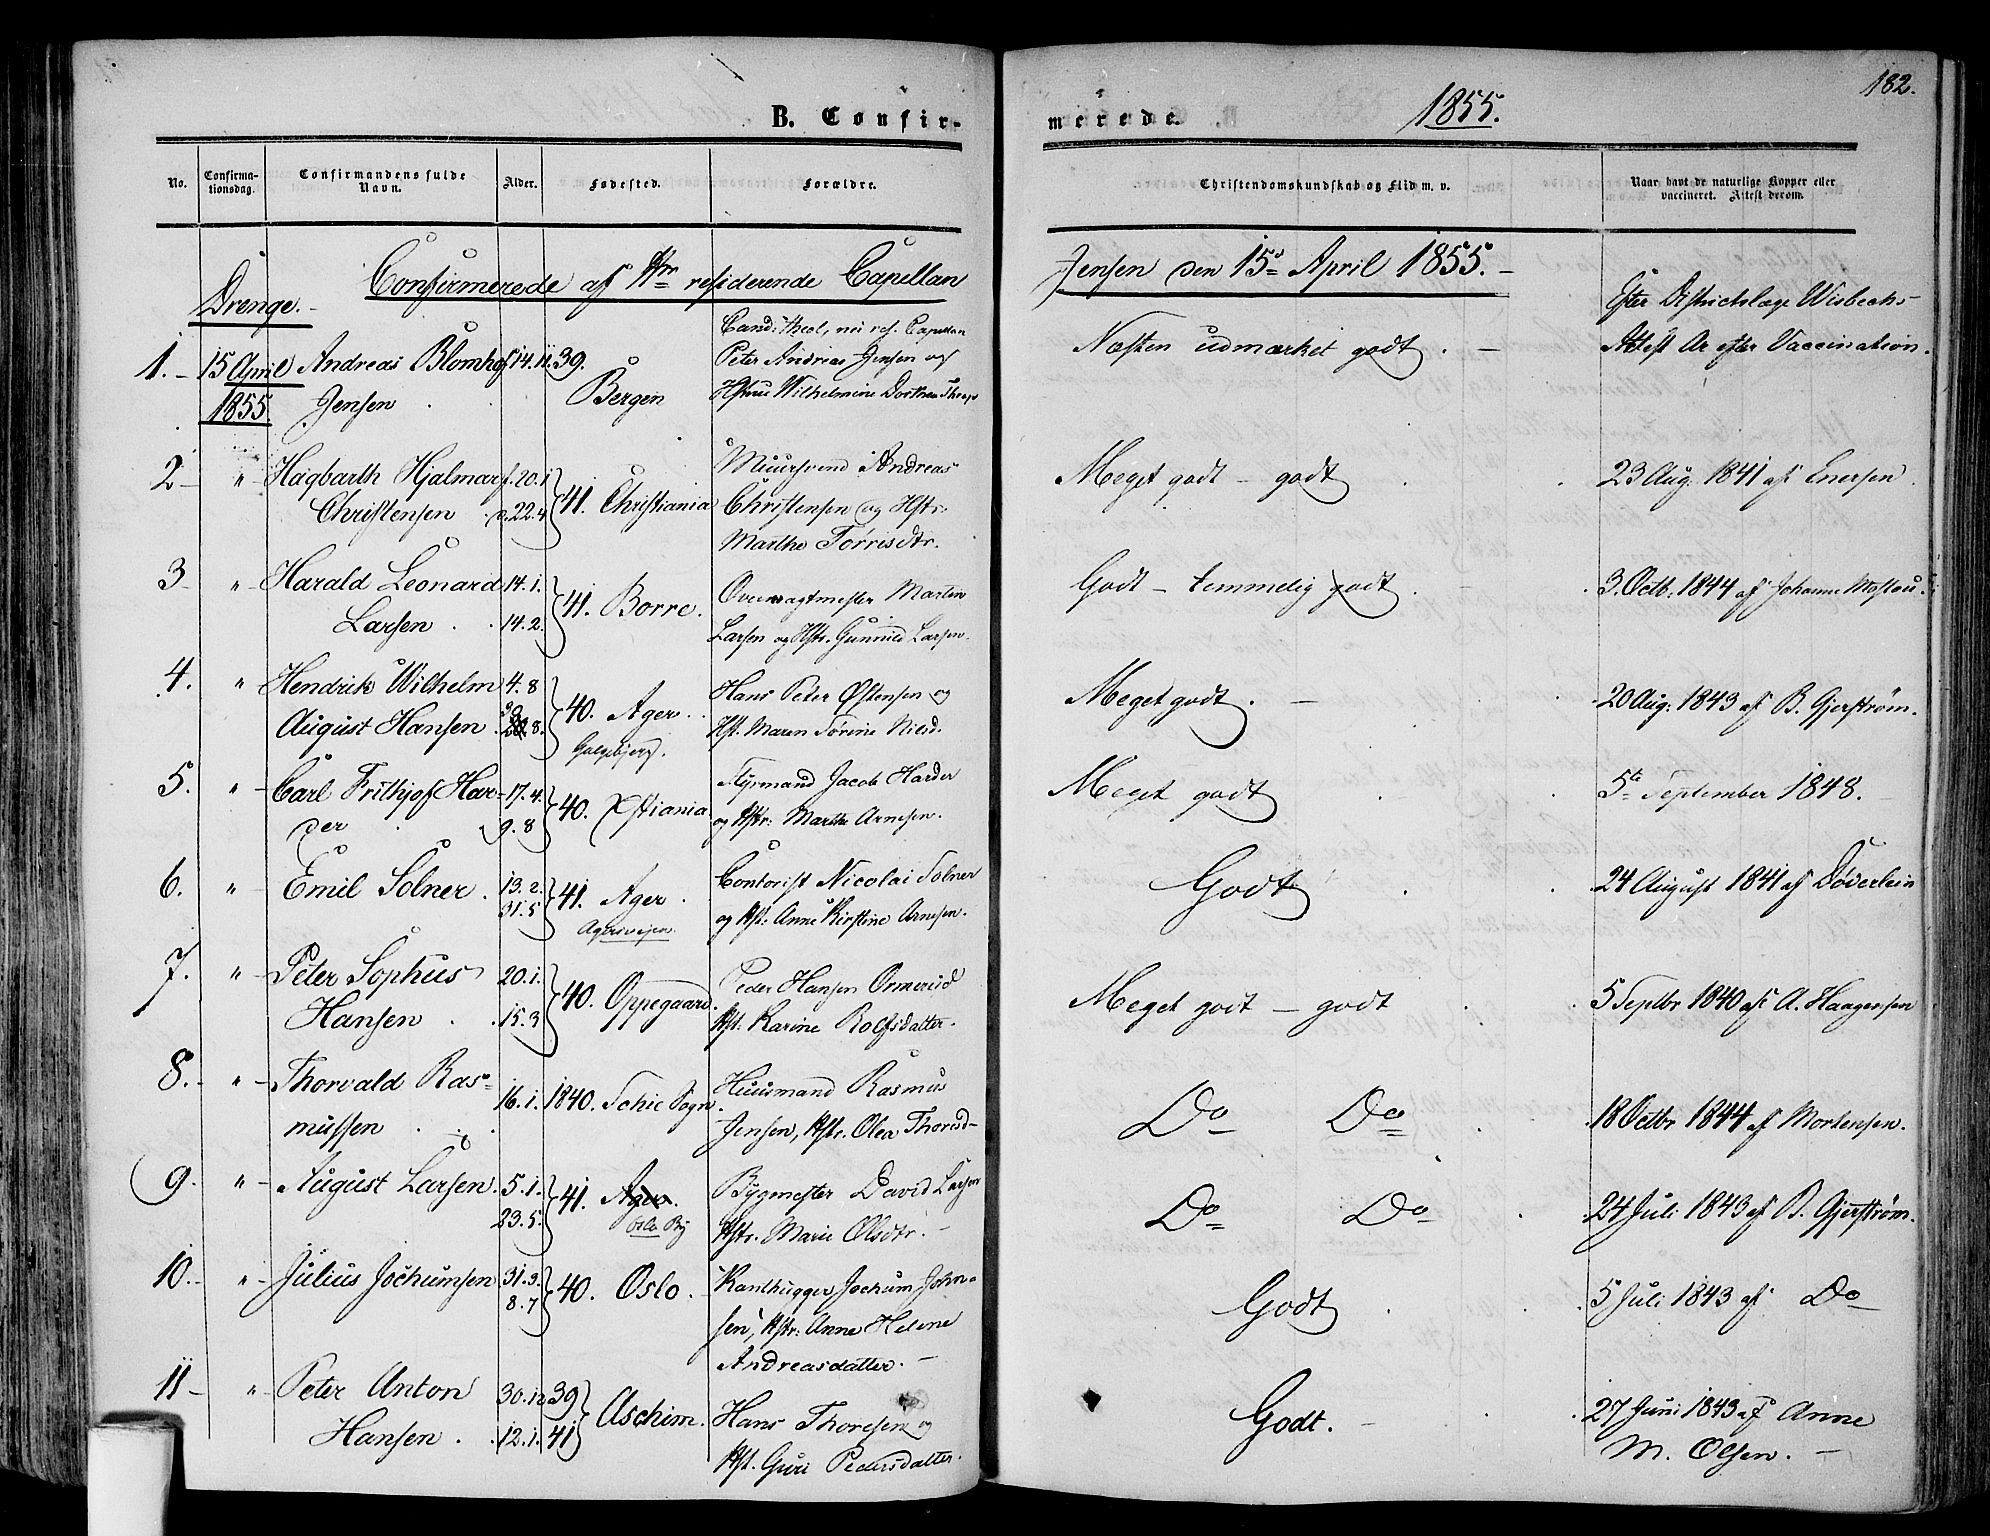 182.
B. Confir-
merede.
1855.
No.
Confirma-
tionsdag.
Confirmandens fulde
Navn.
Alder.
Fødested.
Forældre.
Christendomskundskab og Flid m. v.
Naar havt de naturlige Kopper eller
vaccineret. Attest derom.
Confirmerede af Hr residerende Capellan
Jensen den 15d April 1855. -
Drenge. -
1. - 15 April Andreas Blomhof 14. 11. 39.
1855 Jensen . Bergen
Cand: theol, nu res. Capellan
Peter Andreas Jensen og
Hstru Wilhelmine Dorthea
Næsten udmærket godt . -
Efter Districtslæge Wisbechs
Attest Ar efter Vaccination.
2 " Hagbarth Hjalmar f. 20. 1
Christensen v. 22. 4 41. Christiania
Muursvend Andreas
Christensen og Hstr.
Marthe Torrisdtr.
Meget godt - godt
23 Aug. 1841 af Enersen.
3 " Harald Leonard 14. 1.
Larsen . . 14. 2. 41. Borre.
Overvagtmester Marten
Larsen og Hstr. Gunnild Larsen.
Godt - temmelig godt .
3. Octb. 1844 af Johanne
4. " Hendrik Wilhelm 4. 8
August Hansen . 8. 40. Ager.
Galgebjerg.
Hans Peter Østensen og
Hst. Maren Sørine Nilsd.
Meget godt. -
20 Aug: 1843 af B. Gjerstrøm.
5. " Carl Frithjof Har- 17. 4.
der 9. 8 40. Xstiania.
Styrmand Jacob Harder
og Hstr: Marthe Arnesen.
Meget godt
5te September 1848.
6. " Emil Solner . 13. 2.
31. 5 41. Ager .
Agersvejen.
Contorist Nicolai Solner
og Hst: Anne Kirstine Arnesen.
Godt
24 August 1841 af Døderlein
7. " Peter Sophus 20. 1.
Hansen . . 15. 3 40. Oppegaard.
Peder Hansen Ormerud
Hst. Karine Rolfsdatter.
Meget godt - godt
5 Septbr 1840 af A. Haagensen
8. - " Thorvald Ras-
mussen . . 16. 1. 1840. Schie Sogn.
Huusmand Rasmus
Jensen, Hstr. Olea Thorsd-
Do Do
18 Octbr 1844 af Mortensen.
9. " August Larsen. 5. 1.
23. 5. 41. Ager.
Oslo By
Bygmester David Larsen
Hstr. Marie Olsdtr. -
Do Do
24 Juli 1843 af B. Gjerstrøm.
10. - " Julius Jochumsen 31. 3.
8. 7 40. Oslo .
Kanthugger Jochum John-
sen, Hstr: Anne Helene
Andreasdatter. -
Godt
5 Juli 1843 af Do
11 - " Peter Anton 30. 12 39
Hansen . . 12. 1. 41 Aschim.
Hans Thoresen og
Hst. Guri Pedersdatter.
Godt. -
27 Juni 1843 af Anne
M. Olsen. -